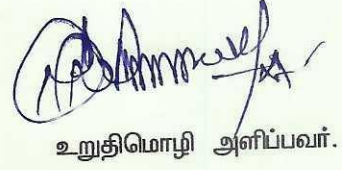 உறுதிமொழி அளிப்பவர்.